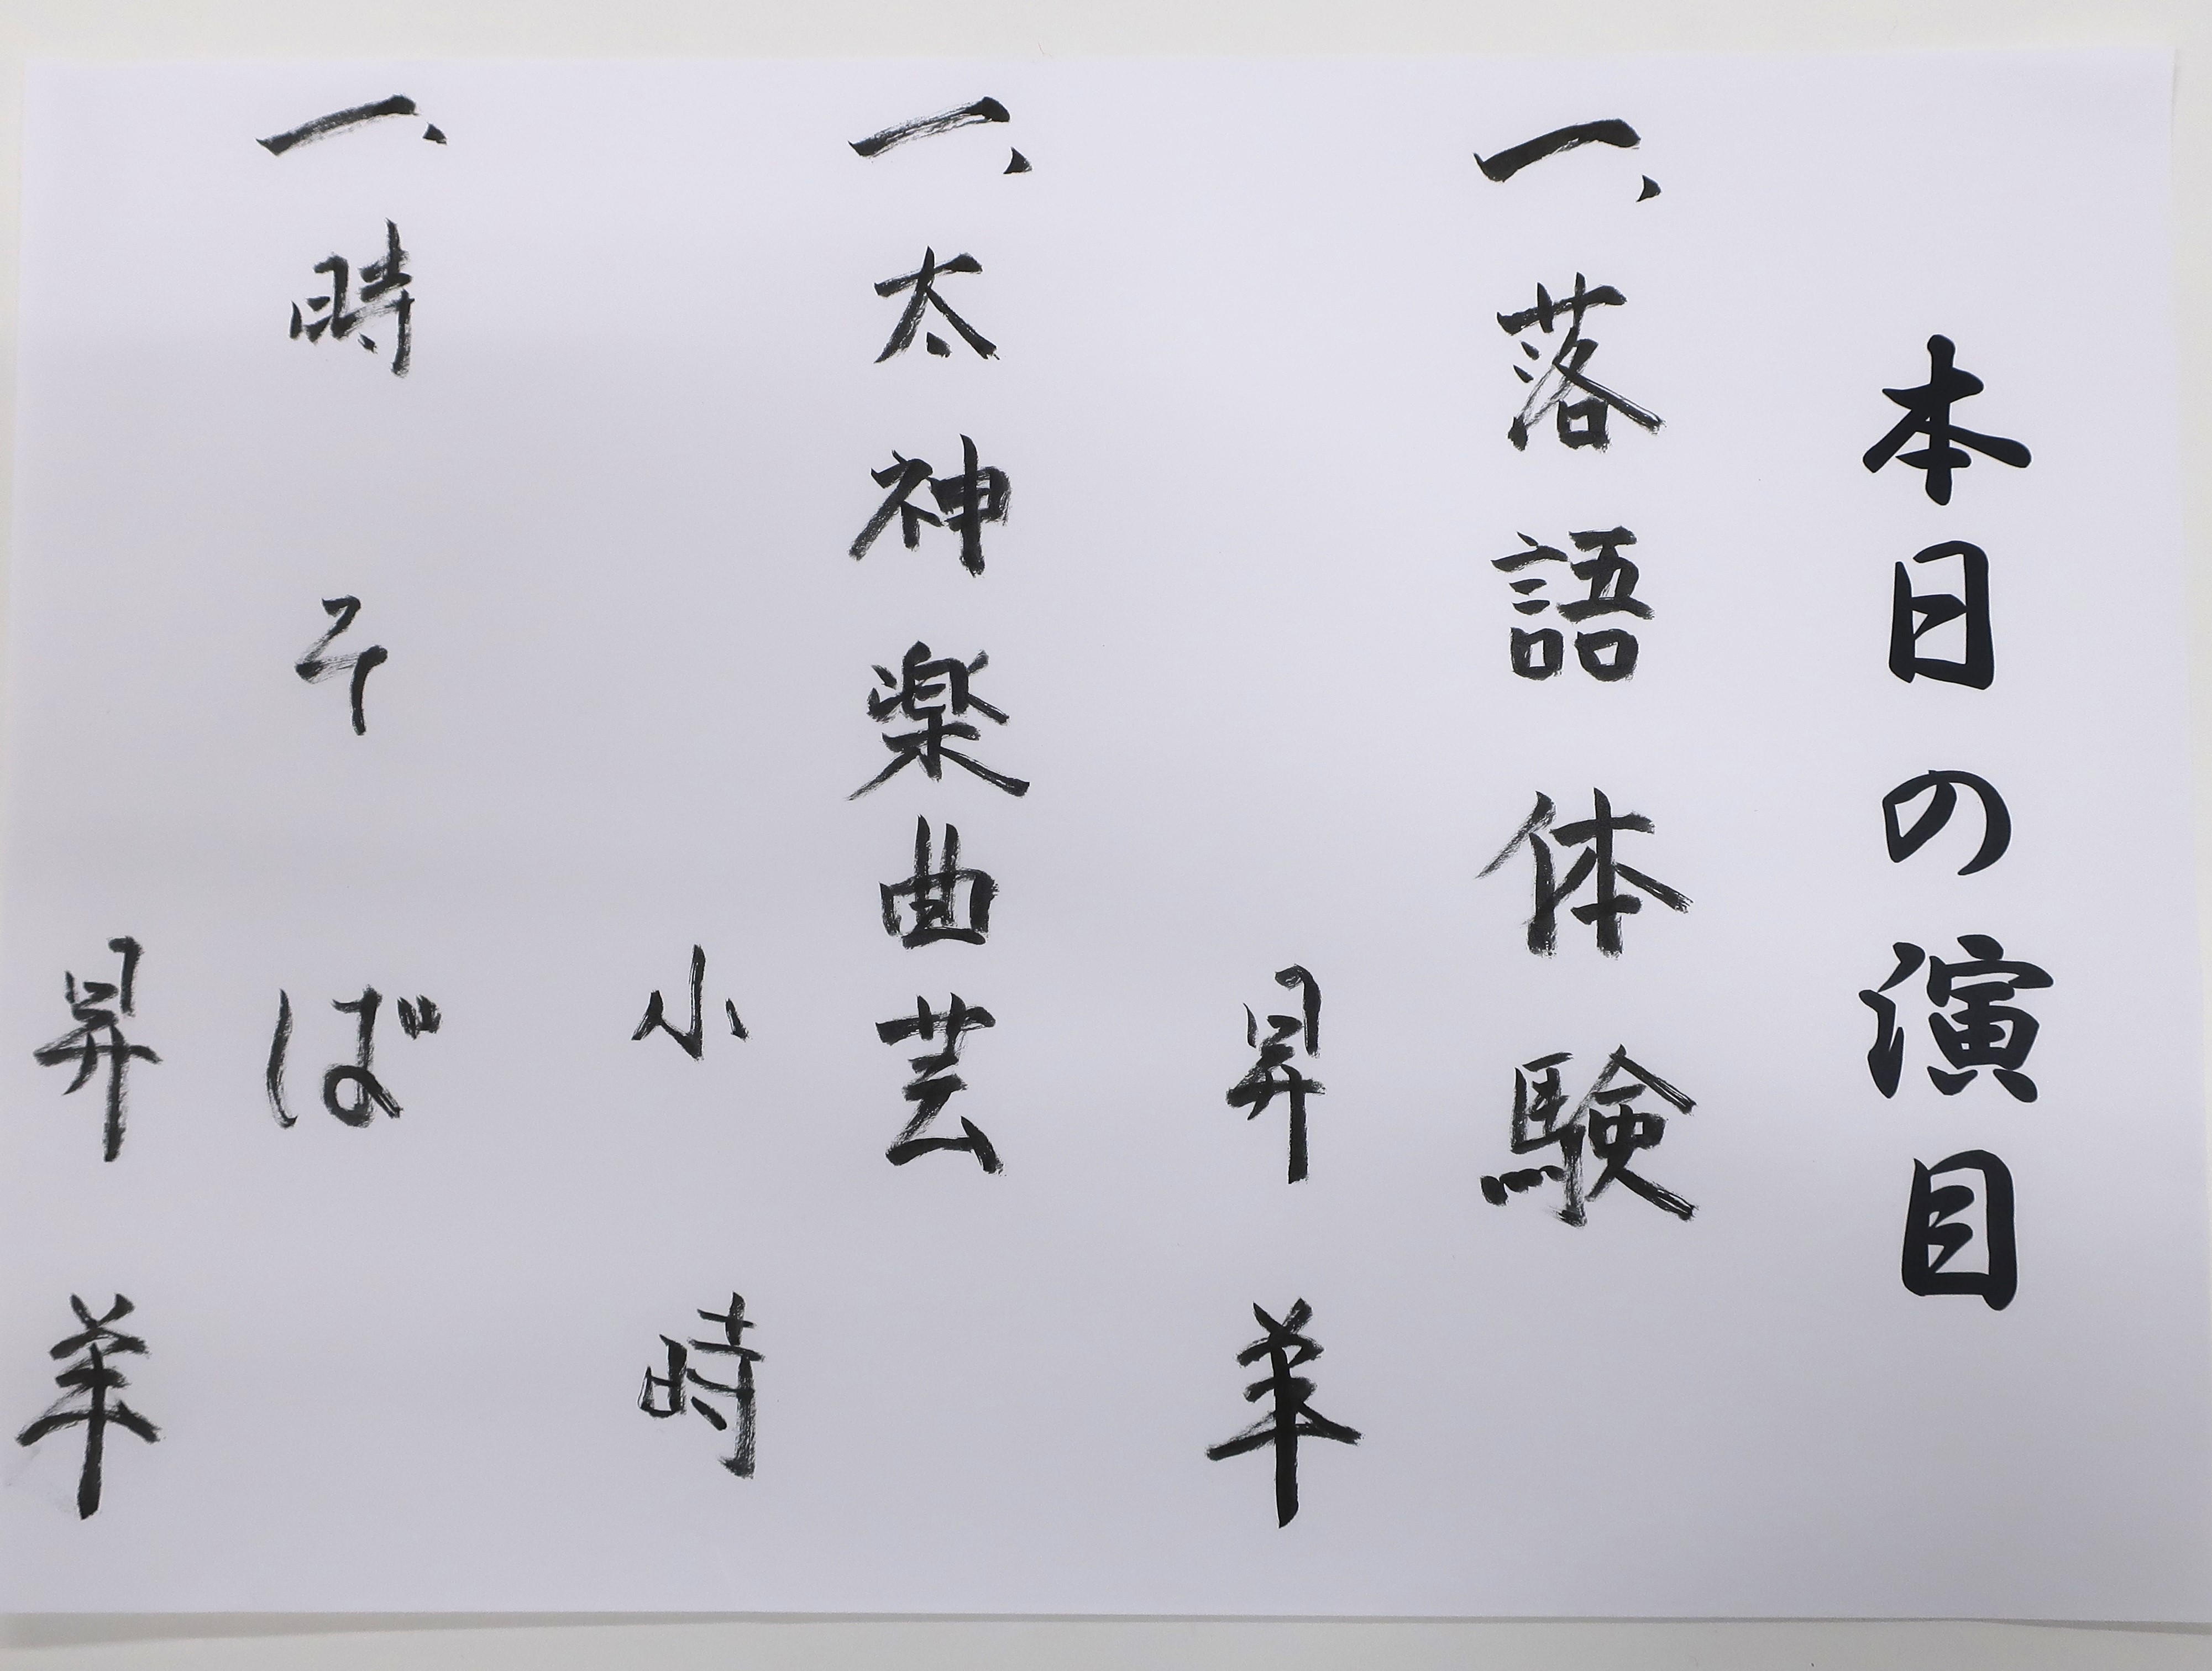 本日の演目
一、落語体験
昇羊
一、太神楽曲芸
小時
一、時そば
昇羊